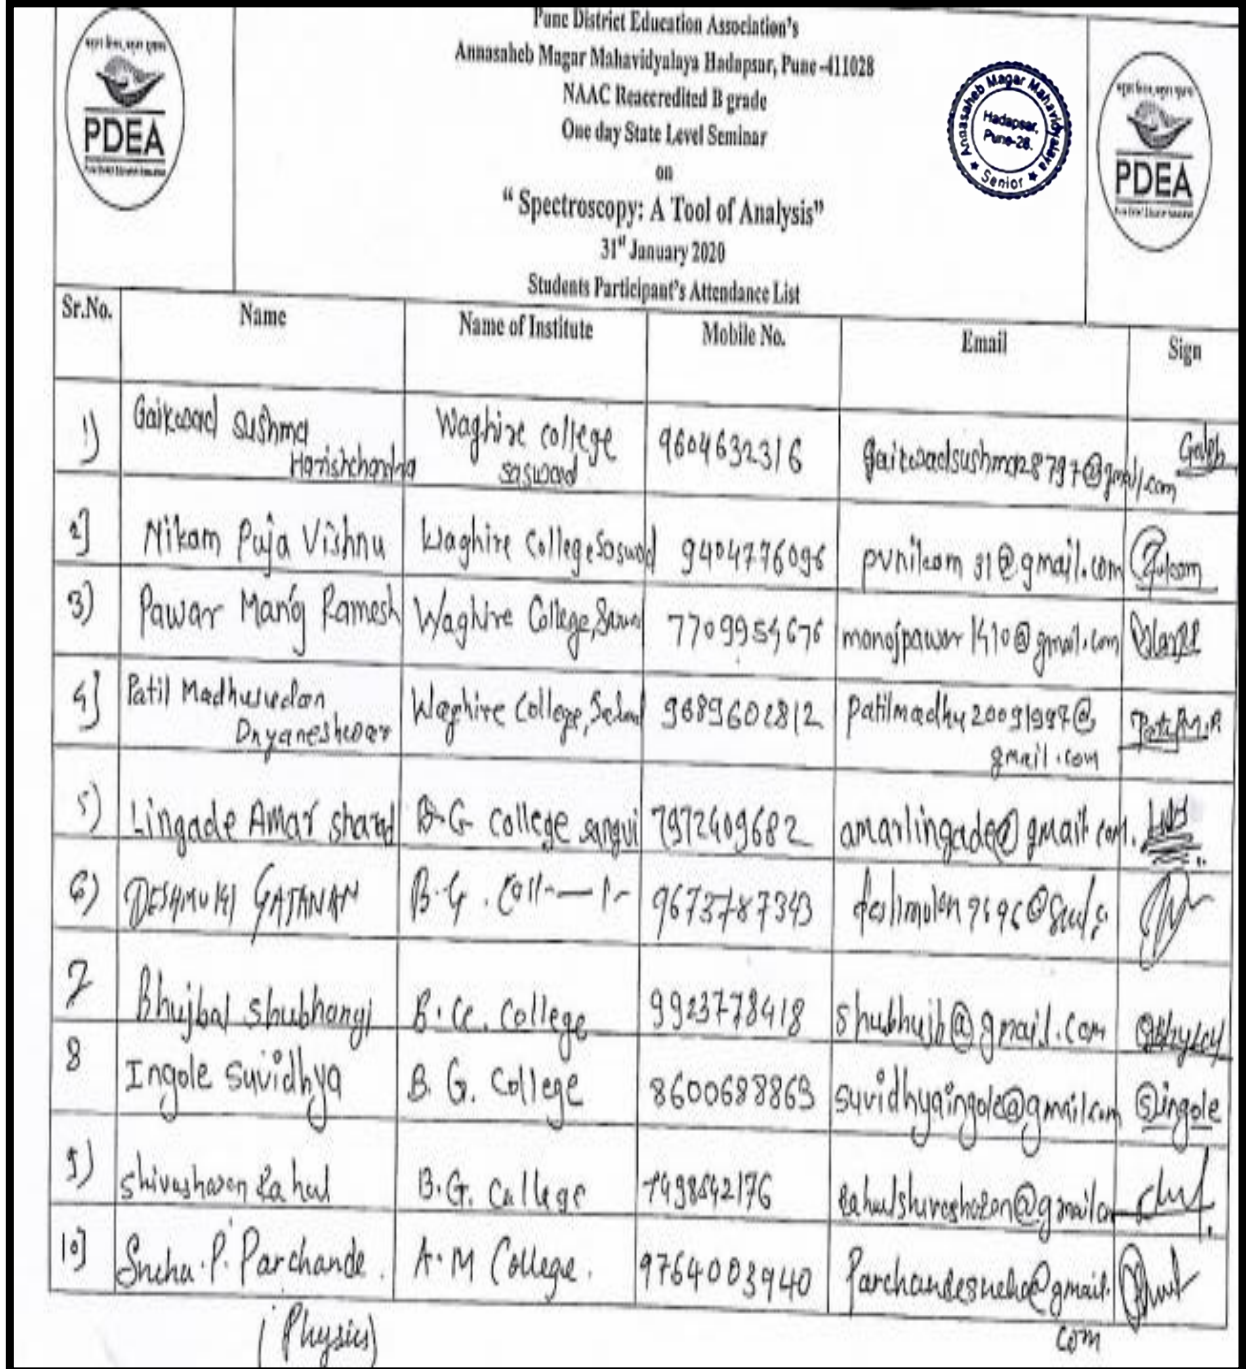 Pune District Education Association's
Annasaheb Magar Mahavidyalaya Hadapsar, Pune-411028
NAAC Reaccredited B grade
One day State Level Seminar
on
“ Spectroscopy: A Tool of Analysis”
31st January 2020
Students Participant's Attendance List
PDEA
Annasaheb Magar Mahavidyalaya
Hadapsar,
Pune-28.
★ Senior ★
PDEA
Sr.No. Name Name of Institute Mobile No. Email Sign
1) Gaikwad Sushma Harishchandra Waghire college Saswad 9604632316 gaikwadsushma28797@gmail.com
2] Nikam Puja Vishnu Waghire College, Saswad 9404776096 pvnikam31@gmail.com
3) Pawar Manoj Ramesh Waghire College, 7709954676 manojpawar1410@gmail.com
4] Patil Madhusudan Dnyaneshwar Waghire College, 9689602812 patilmadhu20091997@gmail.com
5) Lingade Amar sharad B.G. college sangvi 7972409682 amarlingade@gmail.com.
6) DESHMUKH GAJANAN B.G. 9673787343
7 Bhujbal Shubhangi B.G. College 9923778418 shubhujb@gmail.com
8 Ingole Suvidhya B.G. College 8600688869 suvidhyaingole@gmail.com Singole
9) Shivasharan Rahul B.G. College 7498542176
10] Sneha.P. Parchande. A.M College. 9764003940 Parchandesneha@gmail.com
(Physics)